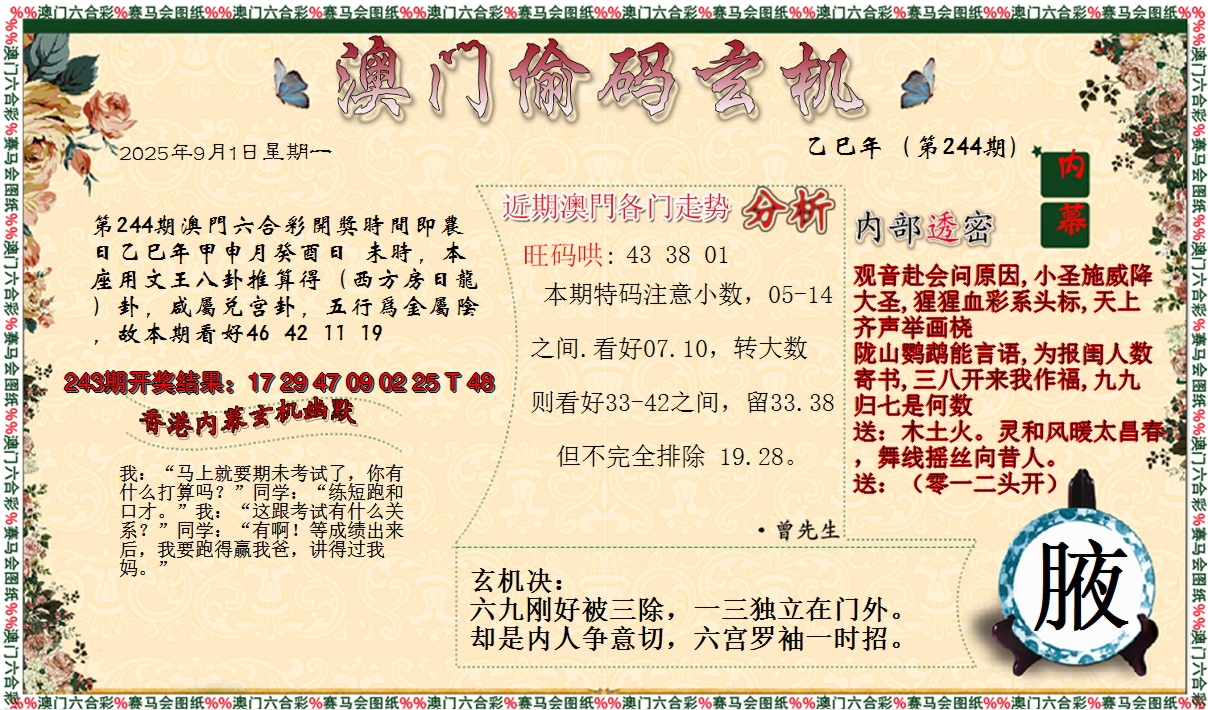 %%澳门六合彩%赛马会图纸%%澳门六合彩%赛马会图纸%%澳门六合彩%赛马会图纸%%澳门六合彩%赛马会图纸%%澳门六合彩%赛马会图纸%%澳门六合彩%赛马会图纸%%
澳门偷码玄机
2025年9月1日星期一
乙巳年（第244期）
内
幕
第244期澳門六合彩開獎時間即農
日乙巳年甲申月癸酉日 未時，本
座用文王八卦推算得（西方房日龍
）卦，咸屬兌宫卦，五行爲金屬陰
，故本期看好46 42 11 19
243期开奖结果：17 29 47 09 02 25 T 48
香港内幕玄机幽默
我：“马上就要期未考试了，你有
什么打算吗？”同学：“练短跑和
口才。”我：“这跟考试有什么关
系？”同学：“有啊！等成绩出来
后，我要跑得赢我爸，讲得过我
妈。”
近期澳門各门走势 分析
旺码哄: 43 38 01
本期特码注意小数，05-14
之间.看好07.10，转大数
则看好33-42之间，留33.38
但不完全排除 19.28。
·曾先生
内部透密
观音赴会问原因,小圣施威降
大圣,猩猩血彩系头标,天上
齐声举画桡
陇山鹦鹉能言语,为报闺人数
寄书,三八开来我作福,九九
归七是何数
送：木土火。灵和风暖太昌春
，舞线摇丝向昔人。
送：（零一二头开）
玄机决：
六九刚好被三除，一三独立在门外。
却是内人争意切，六宫罗袖一时招。
腋
%%澳门六合彩%赛马会图纸%%澳门六合彩%赛马会图纸%%澳门六合彩%赛马会图纸%%澳门六合彩%赛马会图纸%%澳门六合彩%赛马会图纸%%澳门六合彩%赛马会图纸%%